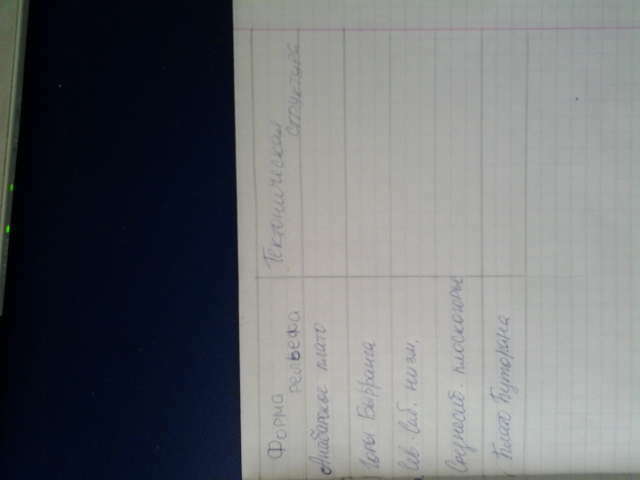 Форма
рельефа
Тектоническая
структура
Анабарское плато
Горы Бырранга
Сев. Сиб. низм.
Среднесиб. плоскогорье
Плато Путорана